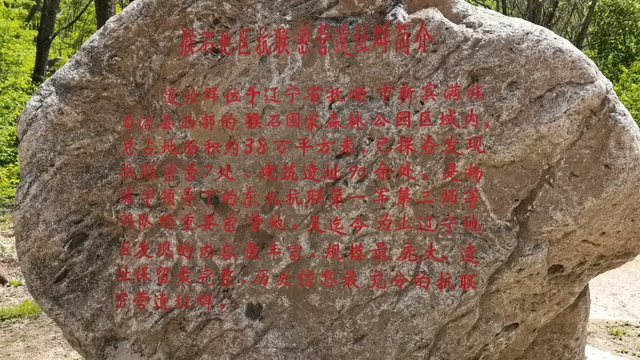 猴石地区抗联密营遗址群简介
遗址群位于辽宁省抚顺市新宾满族
自治县西部的猴石国家森林公园区域内，
总占地面积约38万平方米，已探查发现
抗联密营7处，建筑遗址90余处。是杨
靖宇领导下的东北抗联第一军第三师
部队 重要密营地。是迄今为止辽宁地
区发现的内涵最丰富、规模最庞大、遗
址保留最完整、历史信息最充分的抗联
密营遗址群。